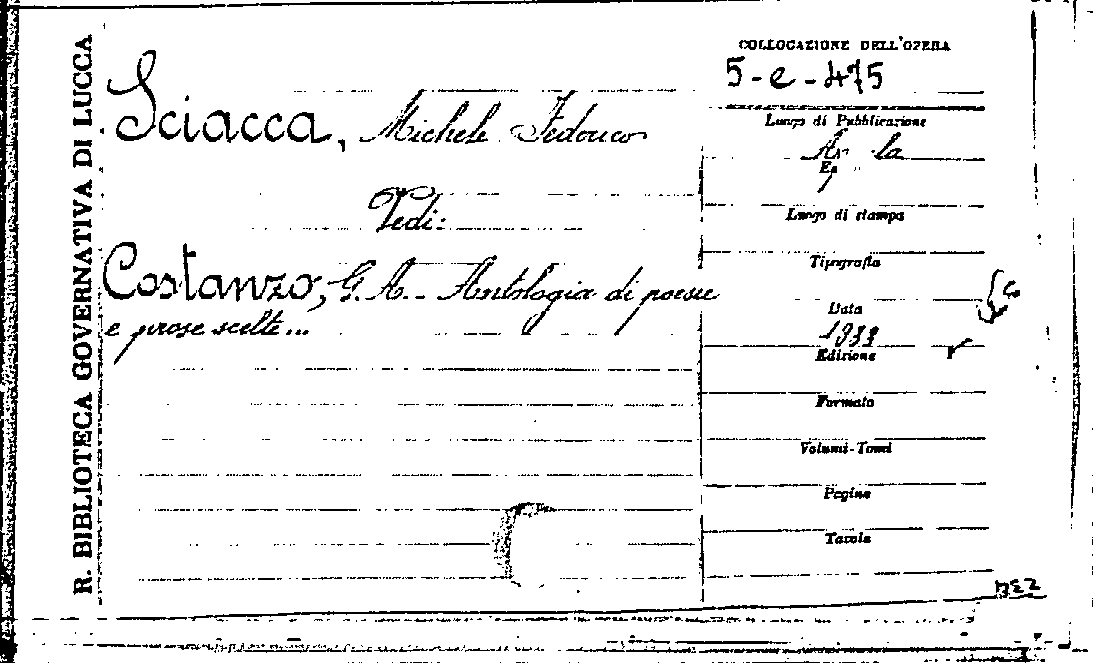 R. BIBLIOTECA GOVERNATIVA DI LUCCA
Sciacca, Michele Federico
Vedi:
Costanzo, G. A. - Antologia di poesie
e prose scelte...
COLLOCAZIONE DELL'OPERA
5-e-475
Luogo di Pubblicazione
Luogo di stampa
Tipografia
Data
1933
Edizione
Formato
Volumi-Tomi
Pagine
Tavole